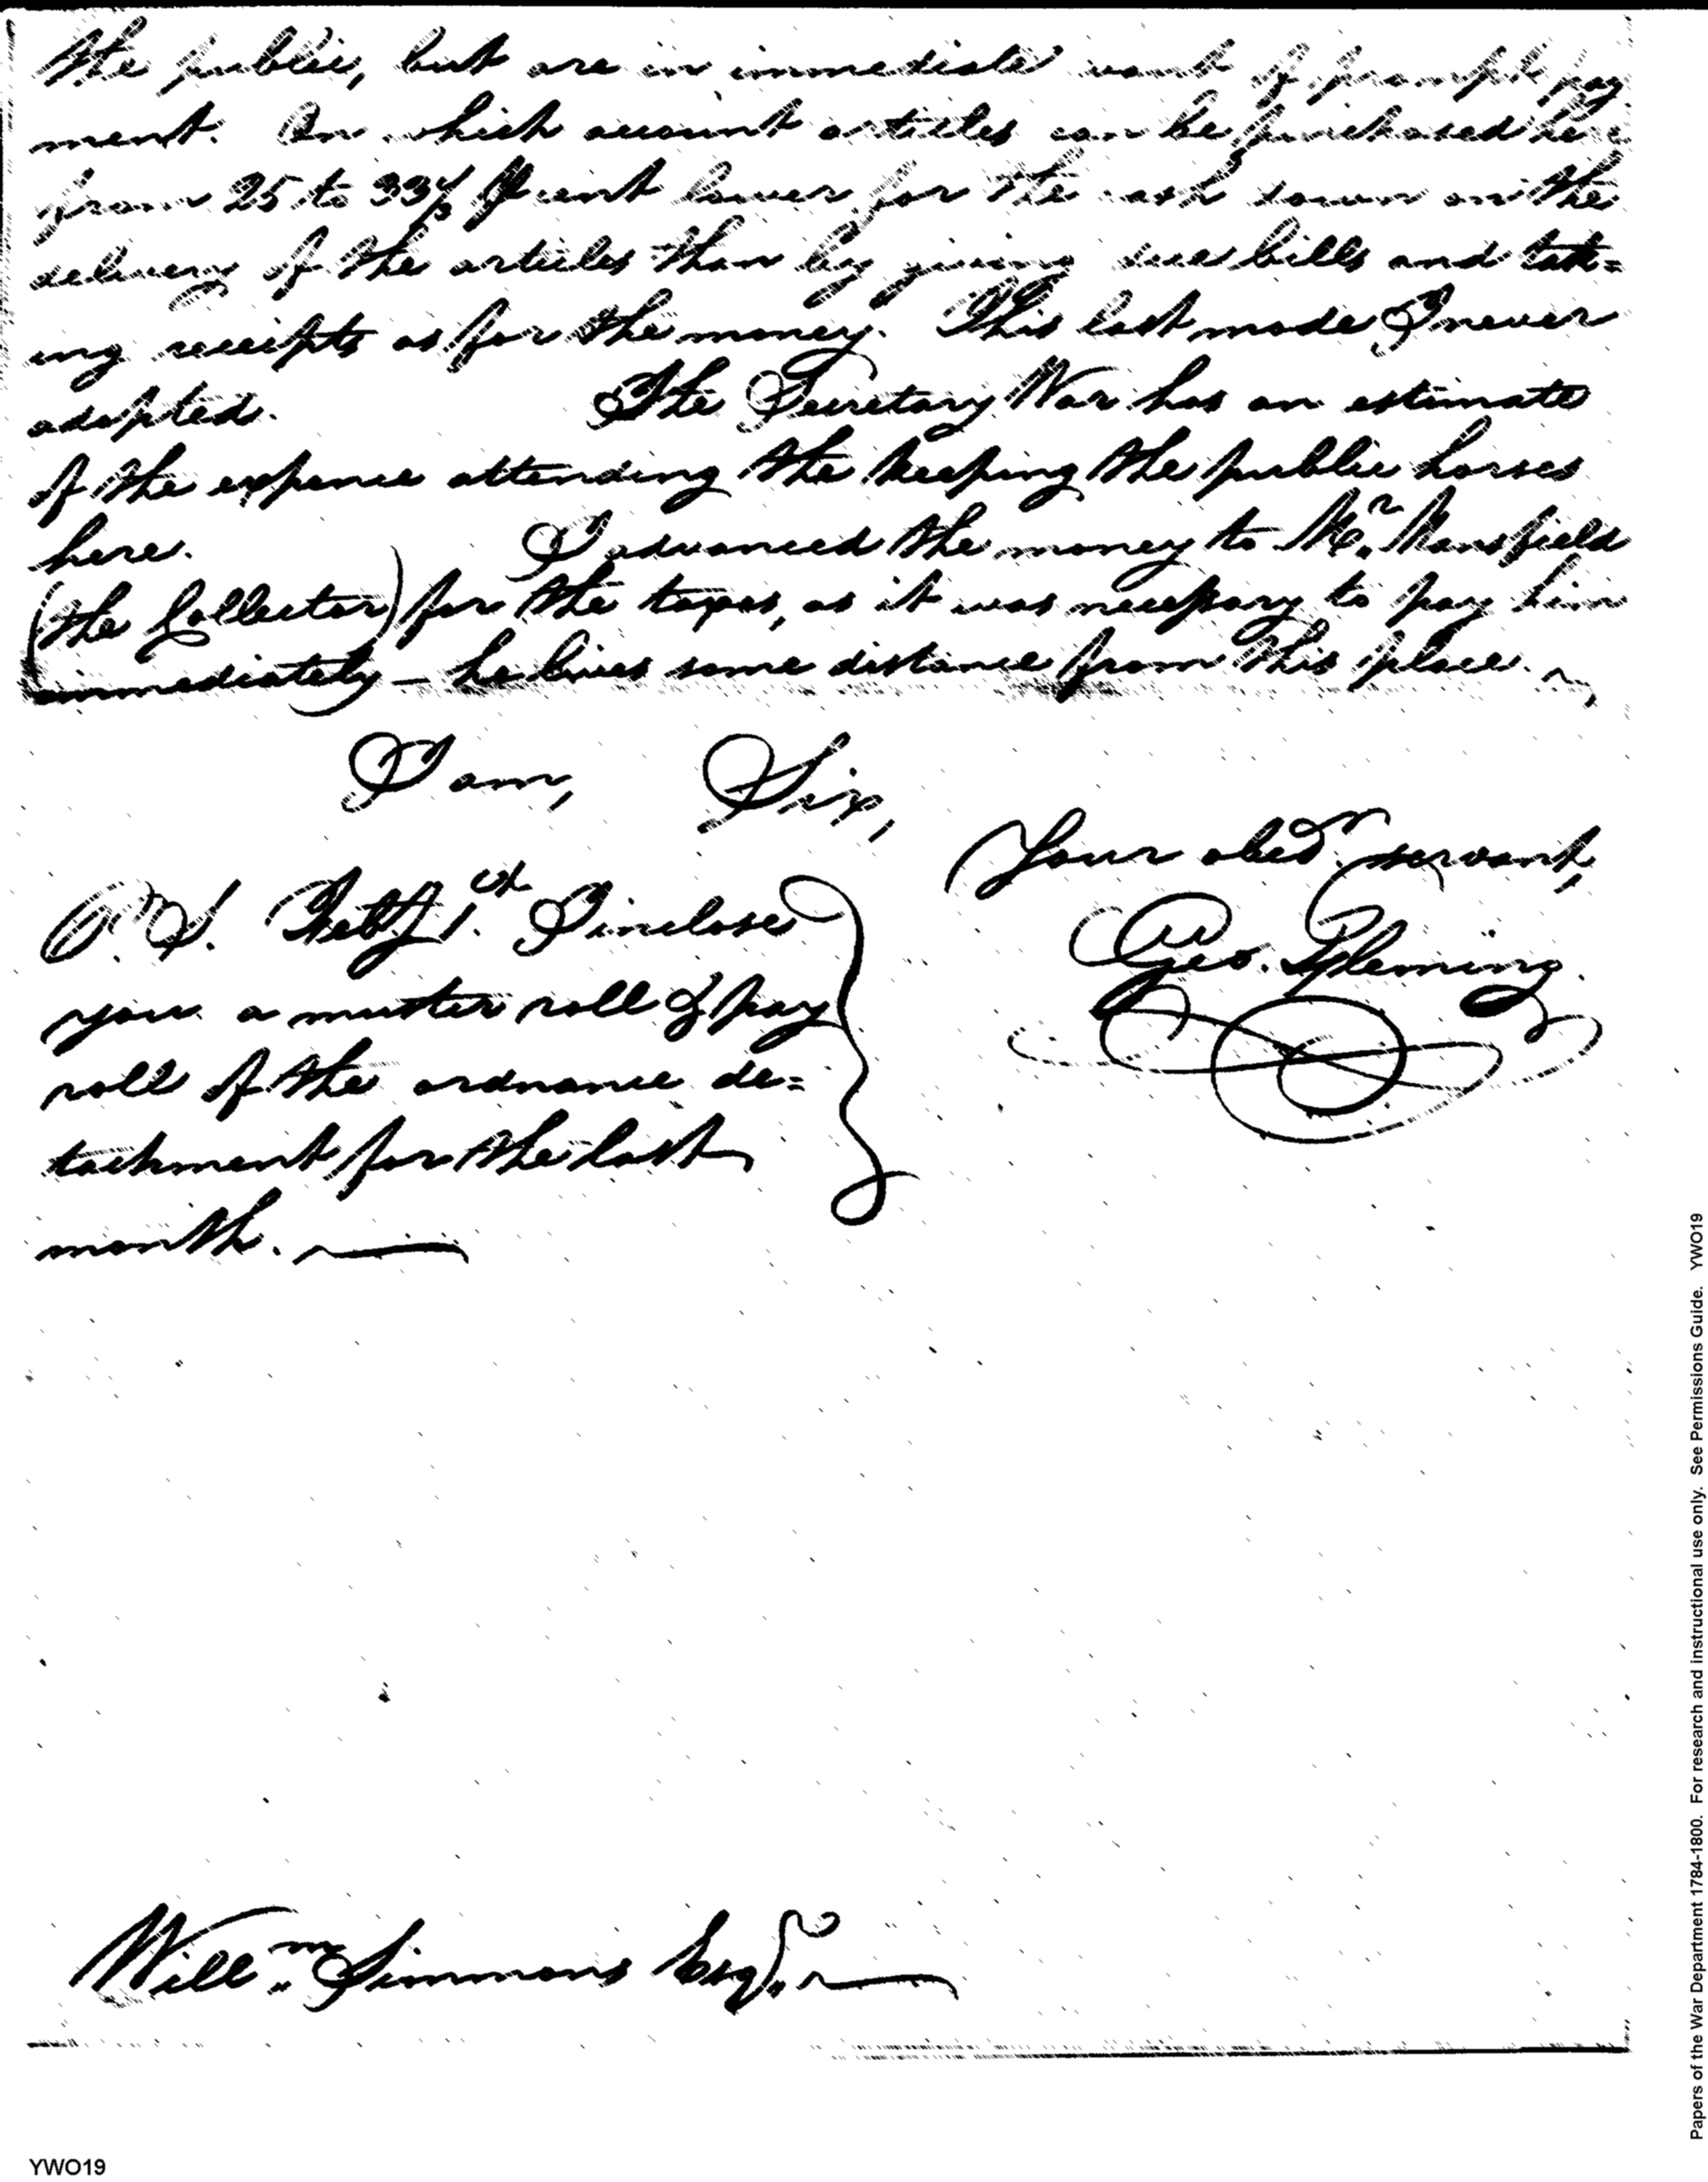 the public, but are in immediate want of prompt pay
ment. On which account articles can be purchased here
from 25 to 33⅓ ⅌ cent lower for the cash down on the
delivery of the articles than by giving due bills and tak=
ing receipts as for the money. This last mode I never
adopted. The Secretary War has an estimate
of the expence attending the keeping the public horses
here. I advanced the money to Mr. Mansfield
(the Collector) for the taxes, as it was necessary to pay him
immediately – he lives some distance from this place.
I am, Sir,
Your obedr. servant,
Geo. Fleming.
P.S. Feby 1.st I inclose
you a muster roll & pay
roll of the ordnance de=
tachment for the last
month.
Willm. Simmons Esqr.
Papers of the War Department 1784-1800. For research and instructional use only. See Permissions Guide. YWO19
YWO19